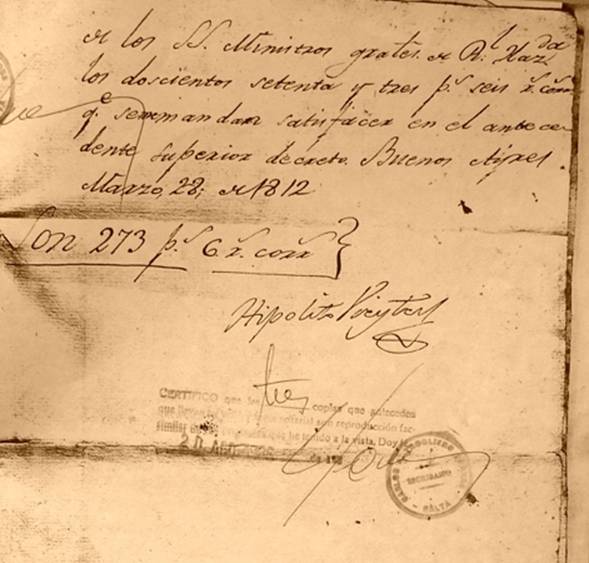 de los SS. Ministros grales. de Rl. Hazda
los doscientos setenta y tres ps. seis rs. corrs
qe. se me mandan satisfacer en el antece-
dente superior decreto. Buenos Ayres
Marzo, 28, de 1812
Son 273 ps. 6 rs. corrs
Hipolito Vieytes
CERTIFICO que las tres copias que anteceden
que llevan mi notarial son reproducción fac-
similar que he tenido a la vista. Doy
20
de 19
CARLOS
ESCRIBANO
SALTA